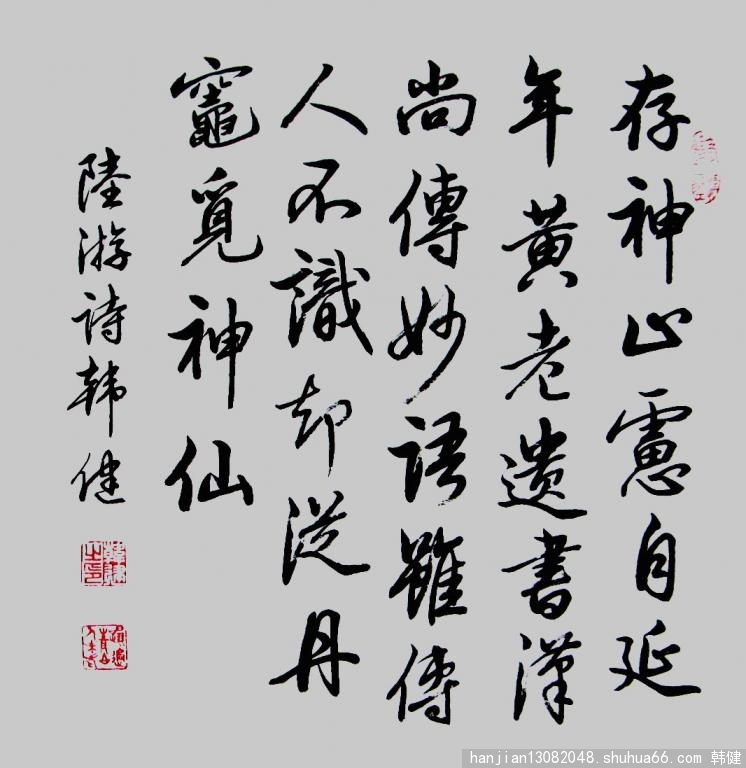 存神止慮自延
年黄老遗書漢
尚傳妙語雖傳
人不識却從丹
竈覓神仙
陸游诗韩健
hanjian13082048.shuhua66.com 韩健